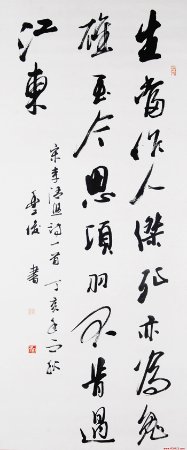 生當作人傑死亦為鬼
雄至今思項羽不肯過
江東
宋李清照詩一首丁亥年秋
書